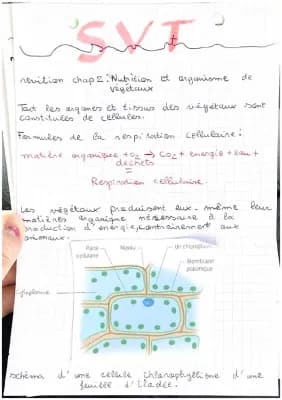 SVT
révision chap 2: Nutrition et organisme de
végétaux
Tout les organes et tissus des végétaux sont
constitués de cellules.
Formules de la respiration cellulaire:
matière organique + O2 → CO2 + énergie + eau +
déchets
=
Respiration cellulaire.
Les végétaux produisent eux-même leur
matières organique nécessaire à la
production d'énergie, contrairement aux
animaux.
Paroi cellulaire
Noyau
Un chloroplaste
Membrane plasmique
Cytoplasme
schéma d'une cellule chlorophylliene d'une
feuille d'Elodée.